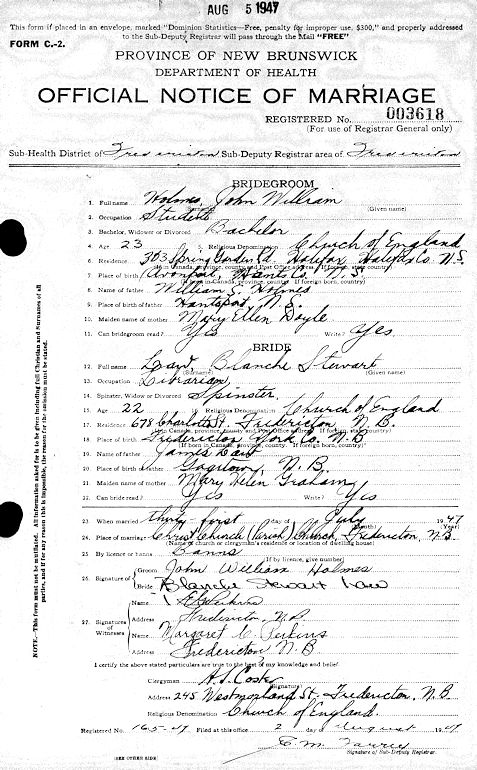 AUG 5 1947
This form if placed in an envelope, marked "Dominion Statistics—Free, penalty for improper use, $300," and properly addressed
to the Sub-Deputy Registrar will pass through the Mail "FREE"
FORM C.-2.
PROVINCE OF NEW BRUNSWICK
DEPARTMENT OF HEALTH
OFFICIAL NOTICE OF MARRIAGE
REGISTERED No. 003618
(For use of Registrar General only)
Sub-Health District of Fredericton Sub-Deputy Registrar area of Fredericton
BRIDEGROOM
1. Full name Holmes, John William
(Surname) (Given name)
2. Occupation Student
3. Bachelor, Widower or Divorced Bachelor
4. Age 23 5. Religious Denomination Church of England
6. Residence 303 Spring Garden Rd. Halifax, Halifax Co. N.S.
7. Place of birth Hants Co. N.S.
8. Name of father William S. Holmes
9. Place of birth of father Hantsport, N.S.
10. Maiden name of mother Mary Ellen Doyle
11. Can bridegroom read? Yes Write? Yes
BRIDE
12. Full name Law, Blanche Stewart
(Surname) (Given name)
13. Occupation Librarian
14. Spinster, Widow or Divorced Spinster
15. Age 22 16. Religious Denomination Church of England
17. Residence 678 Charlotte St. Fredericton N.B.
18. Place of birth Fredericton York Co. N.B.
19. Name of father James Law
20. Place of birth of father Gagetown, N.B.
21. Maiden name of mother Mary Helen Graham
22. Can bride read? Yes Write? Yes
23. When married thirty-first day of July 1947
(Month) (Year)
24. Place of marriage Christ Church (Parish) Church, Fredericton, N.B.
(Name of church or clergyman's residence or location of dwelling house)
25. By licence or banns Banns
(If by licence, give number)
26. Signature of Groom John William Holmes
Bride Blanche Stewart Law
27. Signatures of Witnesses
Name Perkins
Address Fredericton N.B.
Name Margaret C. Perkins
Address Fredericton N.B.
I certify the above stated particulars are true to the best of my knowledge and belief
Clergyman A.S. Coster
(Signature)
Address 245 Westmorland St. Fredericton, N.B.
Religious Denomination Church of England.
Registered No. 165-47 Filed at this office 2 day of August 1947
Signature of Sub-Deputy Registrar.
(SEE OTHER SIDE)
NOTE—This form must not be mutilated. All information asked for is to be given including full Christian and Surnames of all
parties, and if for any reason this is impossible, the reason for the omission must be stated.